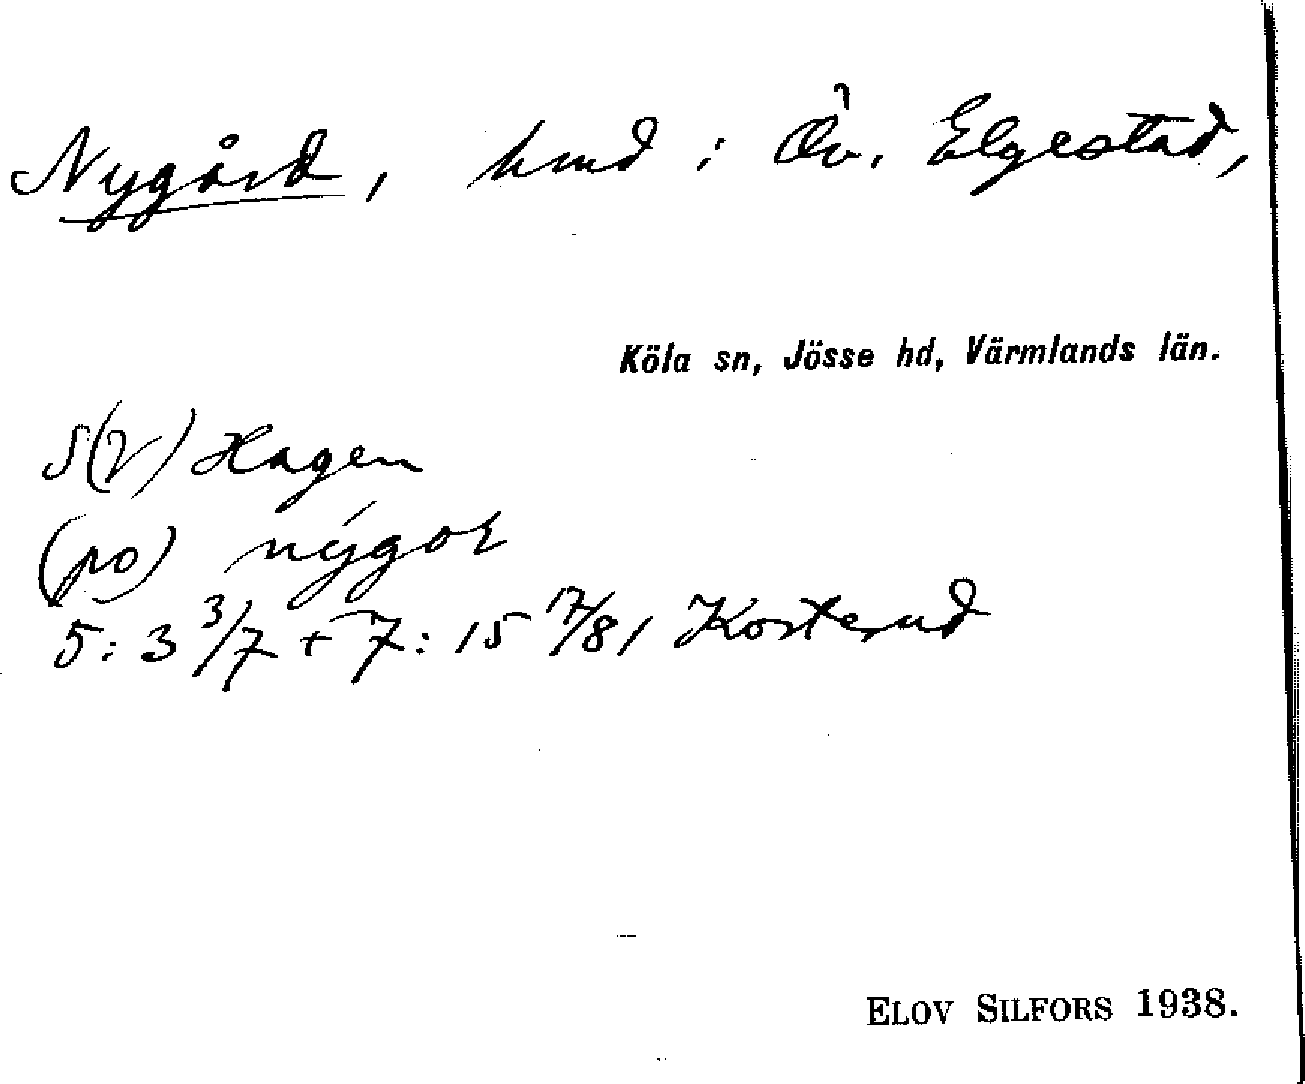 Nygård, hmd i Öv. Elgestad,
Köla sn, Jösse hd, Värmlands län.
S(V) Hagen
(po) nýgoʟ
5:3 3/7 + 7:15 17/81 Kosterud
ELOV SILFORS 1938.